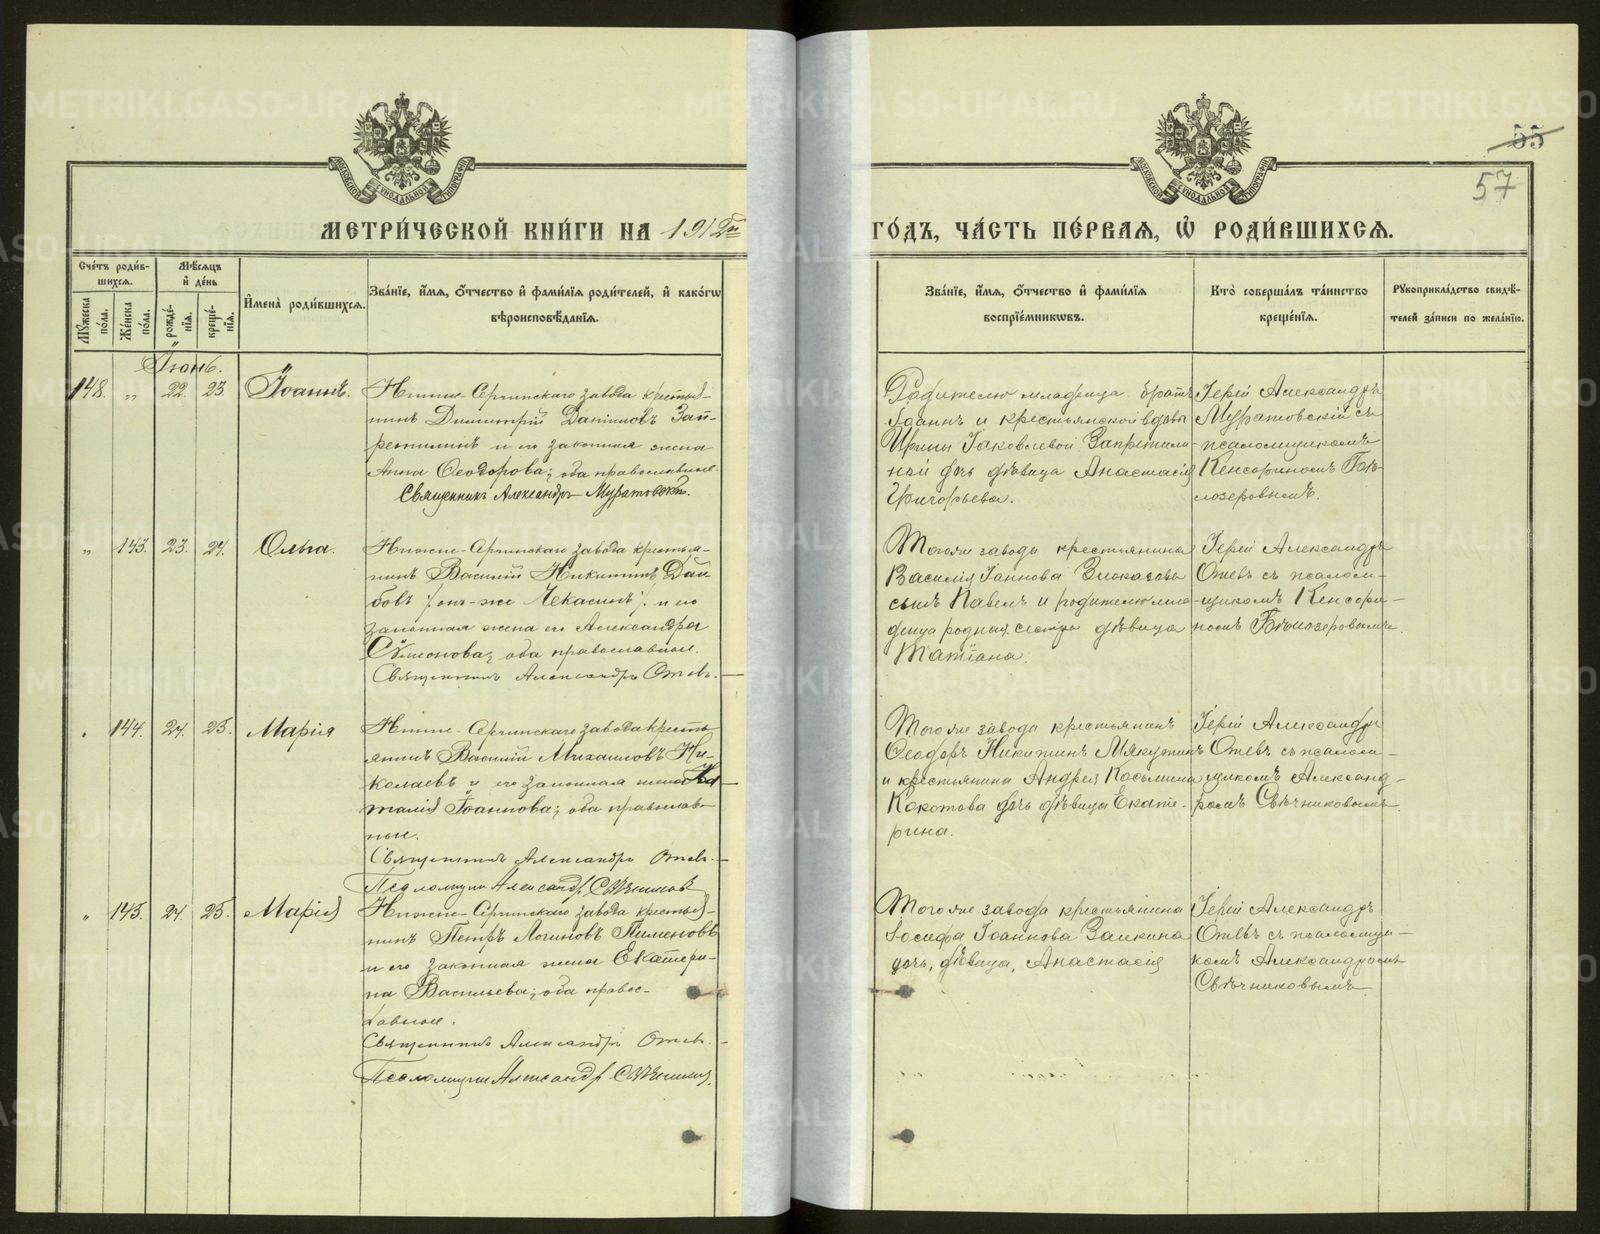 55
57
МЕТРИ́ЧЕСКОЙ КНИ́ГИ НА 1912й ГО́ДЪ, ЧА́СТЬ ПЕ́РВАЯ, Ѡ РОДИ́ВШИХСЯ.
Сче́тъ роди́в-
шихся.
Мꙋ́жеска по́ла.
Же́нска по́ла.
Мѣ́сяцъ
и҆ де́нь
рожде́-
нїя.
креще́-
нїя.
И҆мена̀ роди́вшихся.
Зва́нїе, и҆́мя, ѻ҆́тчество и҆ фами́лїя роди́телей, и҆ како́гѡ
вѣроисповѣ́данїя.
Зва́нїе, и҆́мя, ѻ҆́тчество и҆ фами́лїя
воспрїе́мникѡвъ.
Кто̀ соверша́лъ та́инство
креще́нїя.
Рꙋкоприкла́дство свидѣ́-
телей за́писи по жела́нїю.
Іюнь.
148. „ 22. 23. Іоаннъ.
Нижне-Сергинскаго завода крестья-
нинъ Димитрій Даніиловъ Зап-
ретилинъ и его законная жена
Анна Ѳеодорова; оба православные.
Священникъ Александръ Муратовскій.
Родителю младенца братъ
Іоаннъ и крестьянской вдовы
Ирины Іаковлевой Запретили-
ной дочь дѣвица Анастасія
Григорьева.
Іерей Александръ
Муратовскій съ
псаломщикомъ
Кенсориномъ Бѣ-
лозеровымъ.
„ 143. 23. 24. Ольга.
Нижне-Сергинскаго завода крестья-
нинъ Василій Никитинъ
/онъ-же Чекасинъ/ и его
законная жена его Александра
Сѵмеонова; оба православные.
Священникъ Александръ Отевъ.
Тогоже завода крестьянина
Василія Іаннова Злоказова
сынъ Павелъ и родителю мла-
денца родная сестра дѣвица
Татіана.
Іерей Александръ
Отевъ съ псалом-
щикомъ Кенсори-
номъ Бѣлозеровымъ.
„ 144. 24. 25. Марія
Нижне-Сергинскаго завода кресть-
янинъ Василій Михаиловъ Ни-
колаевъ и его законная жена На-
талія Іоаннова; оба православ-
ные.
Священникъ Александръ Отевъ.
Псаломщикъ Александръ Свѣчниковъ
Тогоже завода крестьянинъ
Ѳеодоръ Никитинъ Мякутинъ
и крестьянина Андрея Косьмина
Кокотова дочь дѣвица Екате-
рина.
Іерей Александръ
Отевъ съ псалом-
щикомъ Александ-
ромъ Свѣчниковымъ.
„ 145. 24. 25. Марія
Нижне-Сергинскаго завода крестья-
нинъ Петръ Логиновъ Пименовъ
и его законная жена Екатери-
на Васильева; оба правос-
лавные.
Священникъ Александръ Отевъ.
Псаломщикъ Александръ Свѣчниковъ
Тогоже завода крестьянина
Іосифа Іоаннова Заикина
дочь, дѣвица, Анастасія
Іерей Александръ
Отевъ съ псаломщи-
комъ Александромъ
Свѣчниковымъ